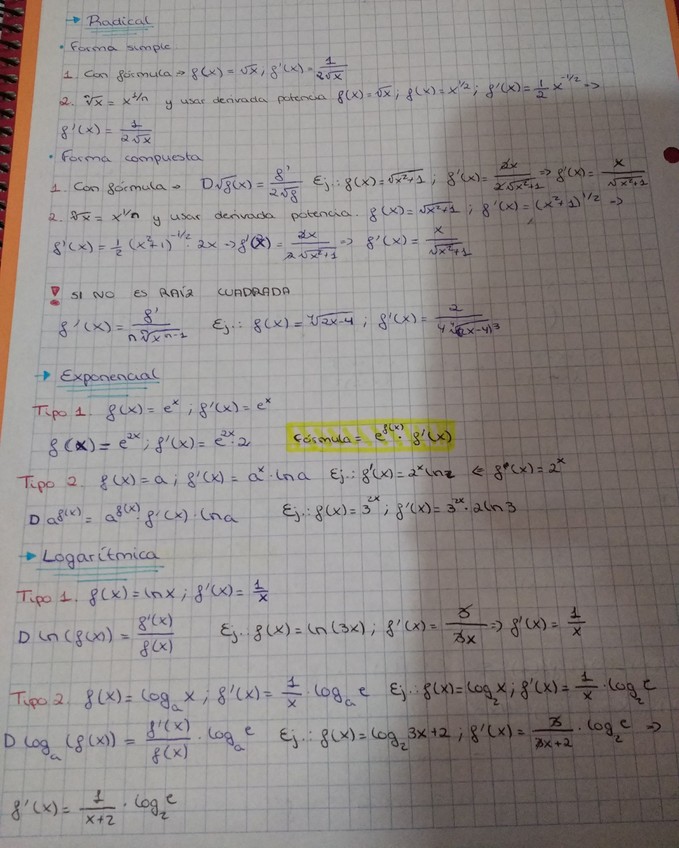 → Radical
• Forma simple
1. Con fórmula → f(x) = √x ; f'(x) = 1/(2√x)
2. ⁿ√x = x^(1/n) y usar derivada potencia f(x) = √x ; f(x) = x^(1/2) ; f'(x) = 1/2 x^(-1/2) →
f'(x) = 1/(2√x)
• Forma compuesta
1. Con fórmula → D√f(x) = f'/(2√f) Ej.: f(x) = √(x²+1) ; f'(x) = 2x/(2√(x²+1)) → f'(x) = x/√(x²+1)
2. ⁿ√x = x^(1/n) y usar derivada potencia. f(x) = √(x²+1) ; f'(x) = (x²+1)^(1/2) →
f'(x) = 1/2 (x²+1)^(-1/2) · 2x → f'(x) = 2x/(2√(x²+1)) → f'(x) = x/√(x²+1)
! SI NO ES RAÍZ CUADRADA
f'(x) = f'/(n ⁿ√(x^(n-1))) Ej.: f(x) = ⁴√(2x-4) ; f'(x) = 2/(4 ⁴√(2x-4)³)
→ Exponencial
Tipo 1. f(x) = e^x ; f'(x) = e^x
f(x) = e^(2x) ; f'(x) = e^(2x) · 2 Fórmula = e^(f(x)) · f'(x)
Tipo 2. f(x) = a ; f'(x) = a^x · ln a Ej.: f'(x) = 2^x ln 2 ← f(x) = 2^x
D a^(f(x)) = a^(f(x)) · f'(x) · ln a Ej.: f(x) = 3^(2x) ; f'(x) = 3^(2x) · 2 ln 3
→ Logarítmica
Tipo 1. f(x) = ln x ; f'(x) = 1/x
D ln (f(x)) = f'(x)/f(x) Ej.: f(x) = ln (3x) ; f'(x) = 3/3x → f'(x) = 1/x
Tipo 2. f(x) = log_a x ; f'(x) = 1/x · log_a e Ej.: f(x) = log_2 x ; f'(x) = 1/x · log_2 e
D log_a (f(x)) = f'(x)/f(x) · log_a e Ej.: f(x) = log_2 3x+2 ; f'(x) = 3/(3x+2) · log_2 e →
f'(x) = 1/(x+2) · log_2 e